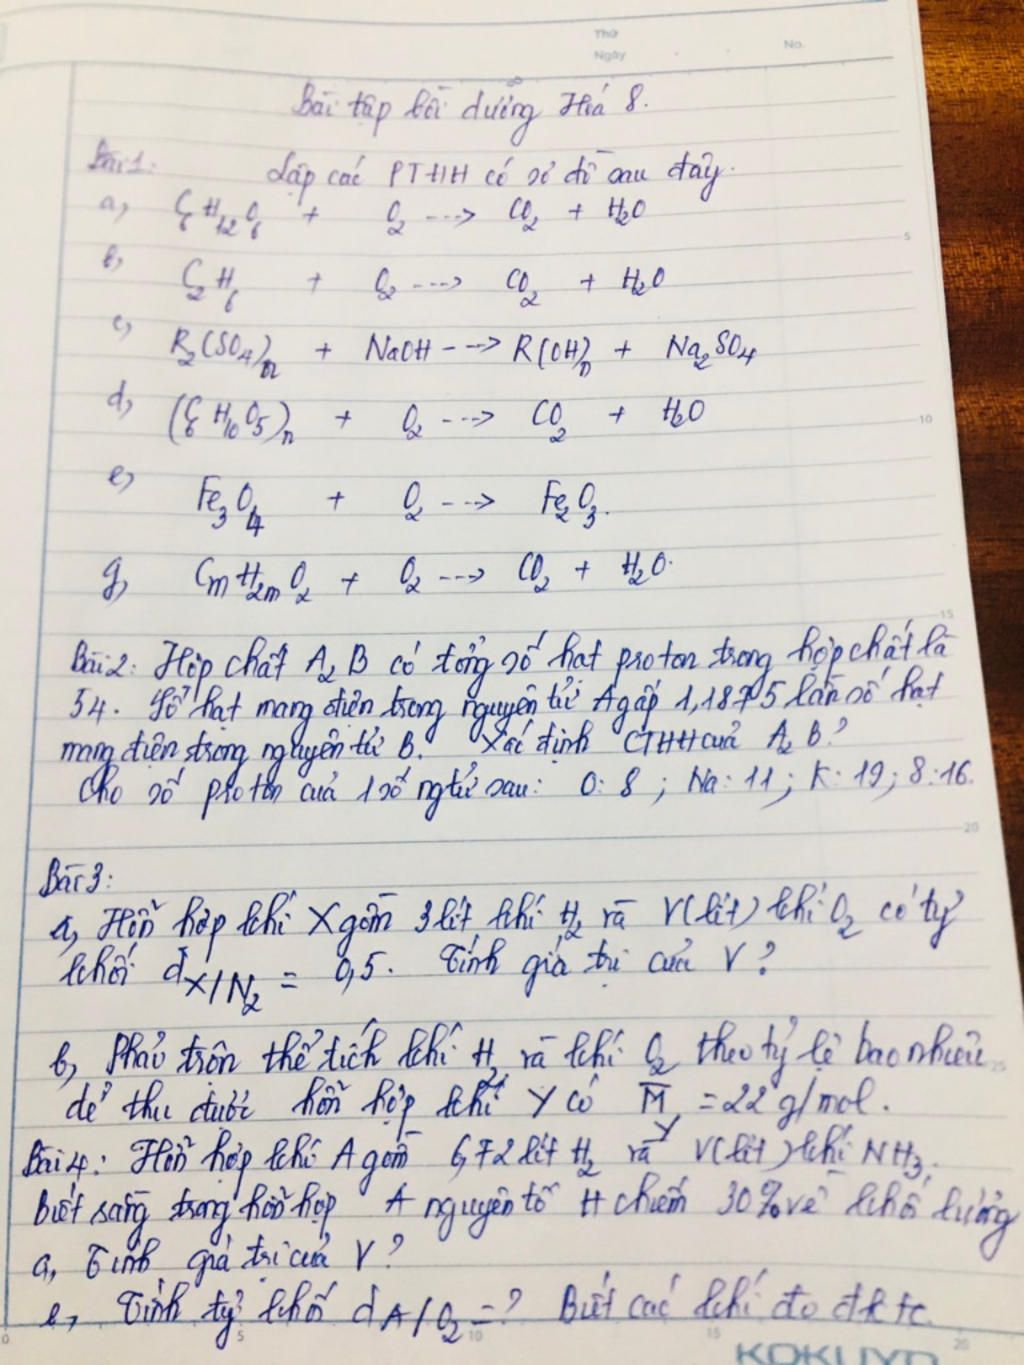 Thứ
Ngày
No.
Bài tập bồi dưỡng Hoá 8.
Bài 1: Lập các PTHH có sơ đồ sau đây.
a, C6H12O6 + O2 ---> CO2 + H2O
b, C2H6 + O2 ---> CO2 + H2O
c, R2(SO4)n + NaOH ---> R(OH)n + Na2SO4
d, (C6H10O5)n + O2 ---> CO2 + H2O
e, Fe3O4 + O2 ---> Fe2O3.
g, CmH2mO2 + O2 ---> CO2 + H2O.
Bài 2: Hợp chất A2B có tổng số hạt proton trong hợp chất là
54. Số hạt mang điện trong nguyên tử A gấp 1,1875 lần số hạt
mang điện trong nguyên tử B. Xác định CTHH của A2B?
Cho số proton của 1 số ngtử sau: O: 8 ; Na: 11 ; K: 19 ; S: 16.
Bài 3:
a, Hỗn hợp khí X gồm 3 lít khí H2 và V(lít) khí O2 có tỷ
khối dX/N2 = 0,5. Tính giá trị của V?
b, Phải trộn thể tích khí H2 và khí O2 theo tỷ lệ bao nhiêu
để thu được hỗn hợp khí Y có M̅Y = 22 g/mol.
Bài 4: Hỗn hợp khí A gồm 6,72 lít H2 và V(lít) khí NH3.
Biết rằng trong hỗn hợp A nguyên tố H chiếm 30% về khối lượng
a, Tính giá trị của V?
b, Tính tỷ khối dA/O2 = ? Biết các khí đo đktc.
5
10
15
20
25
0 5 10 15 20
KOKUYO